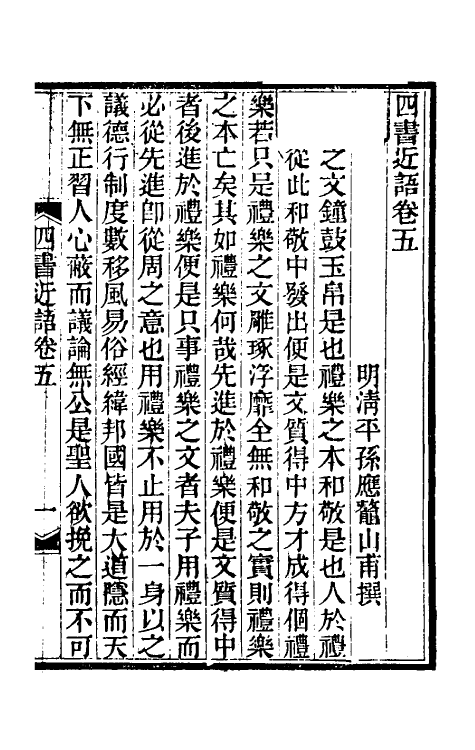 四書近語卷五
明清平孫應鼇山甫撰
之文鐘鼓玉帛是也禮樂之本和敬是也人於禮
從此和敬中發出便是文質得中方才成得個禮
樂若只是禮樂之文雕琢浮靡全無和敬之實則禮樂
之本亡矣其如禮樂何哉先進於禮樂便是文質得中
者後進於禮樂便是只事禮樂之文者夫子用禮樂而
必從先進卽從周之意也用禮樂不止用於一身以之
議德行制度數移風易俗經緯邦國皆是大道隱而天
下無正習人心蔽而議論無公是聖人欲挽之而不可
四書近語卷五
一